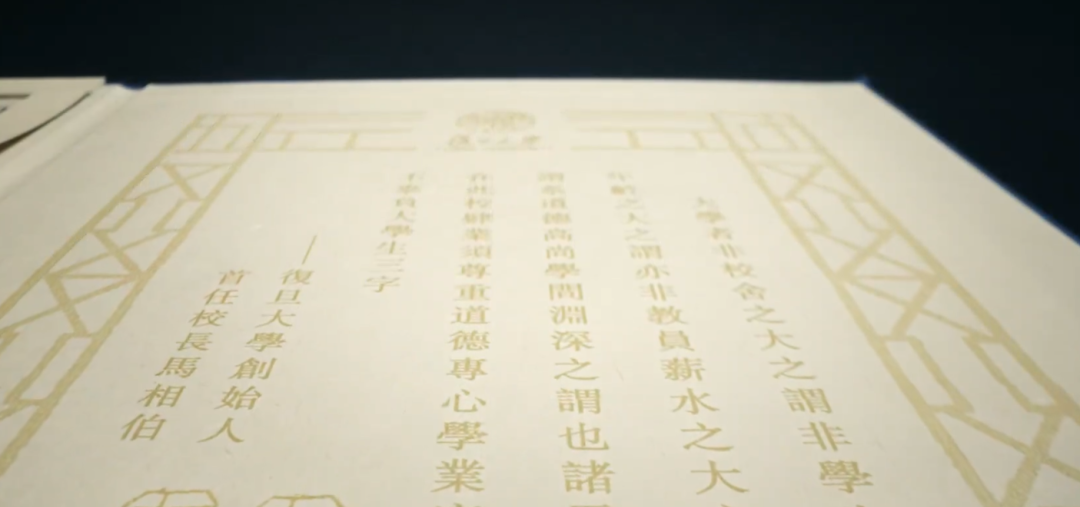 大學者非校舍之大之謂非學
年齡之大之謂亦非教員薪水之大
謂係道德高尚學問淵深之謂也諸
在此校肄業須尊重道德專心學業
不辜負大學生三字
—復旦大學創始人
首任校長馬相伯